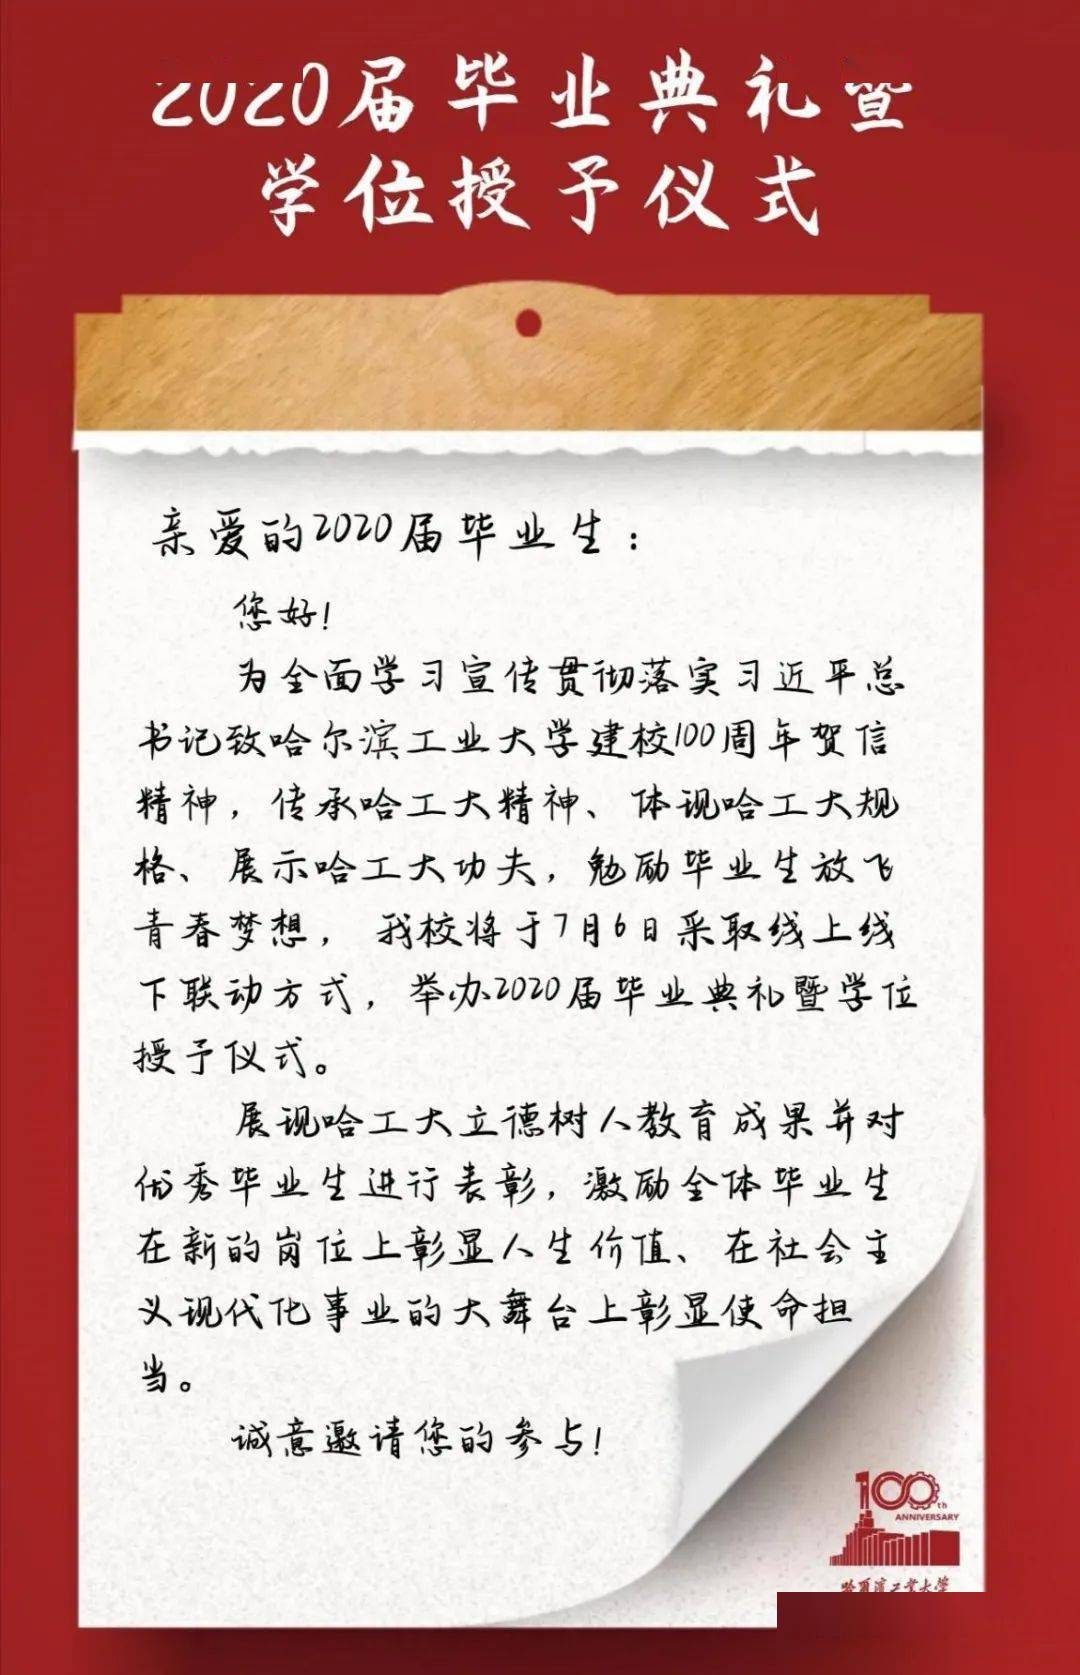 2020届毕业典礼暨
学位授予仪式
亲爱的2020届毕业生：
您好！
为全面学习宣传贯彻落实习近平总
书记致哈尔滨工业大学建校100周年贺信
精神，传承哈工大精神、体现哈工大规
格、展示哈工大功夫，勉励毕业生放飞
青春梦想，我校将于7月6日采取线上线
下联动方式，举办2020届毕业典礼暨学位
授予仪式。
展现哈工大立德树人教育成果并对
优秀毕业生进行表彰，激励全体毕业生
在新的岗位上彰显人生价值、在社会主
义现代化事业的大舞台上彰显使命担
当。
诚意邀请您的参与！
100th
ANNIVERSARY
哈尔滨工业大学